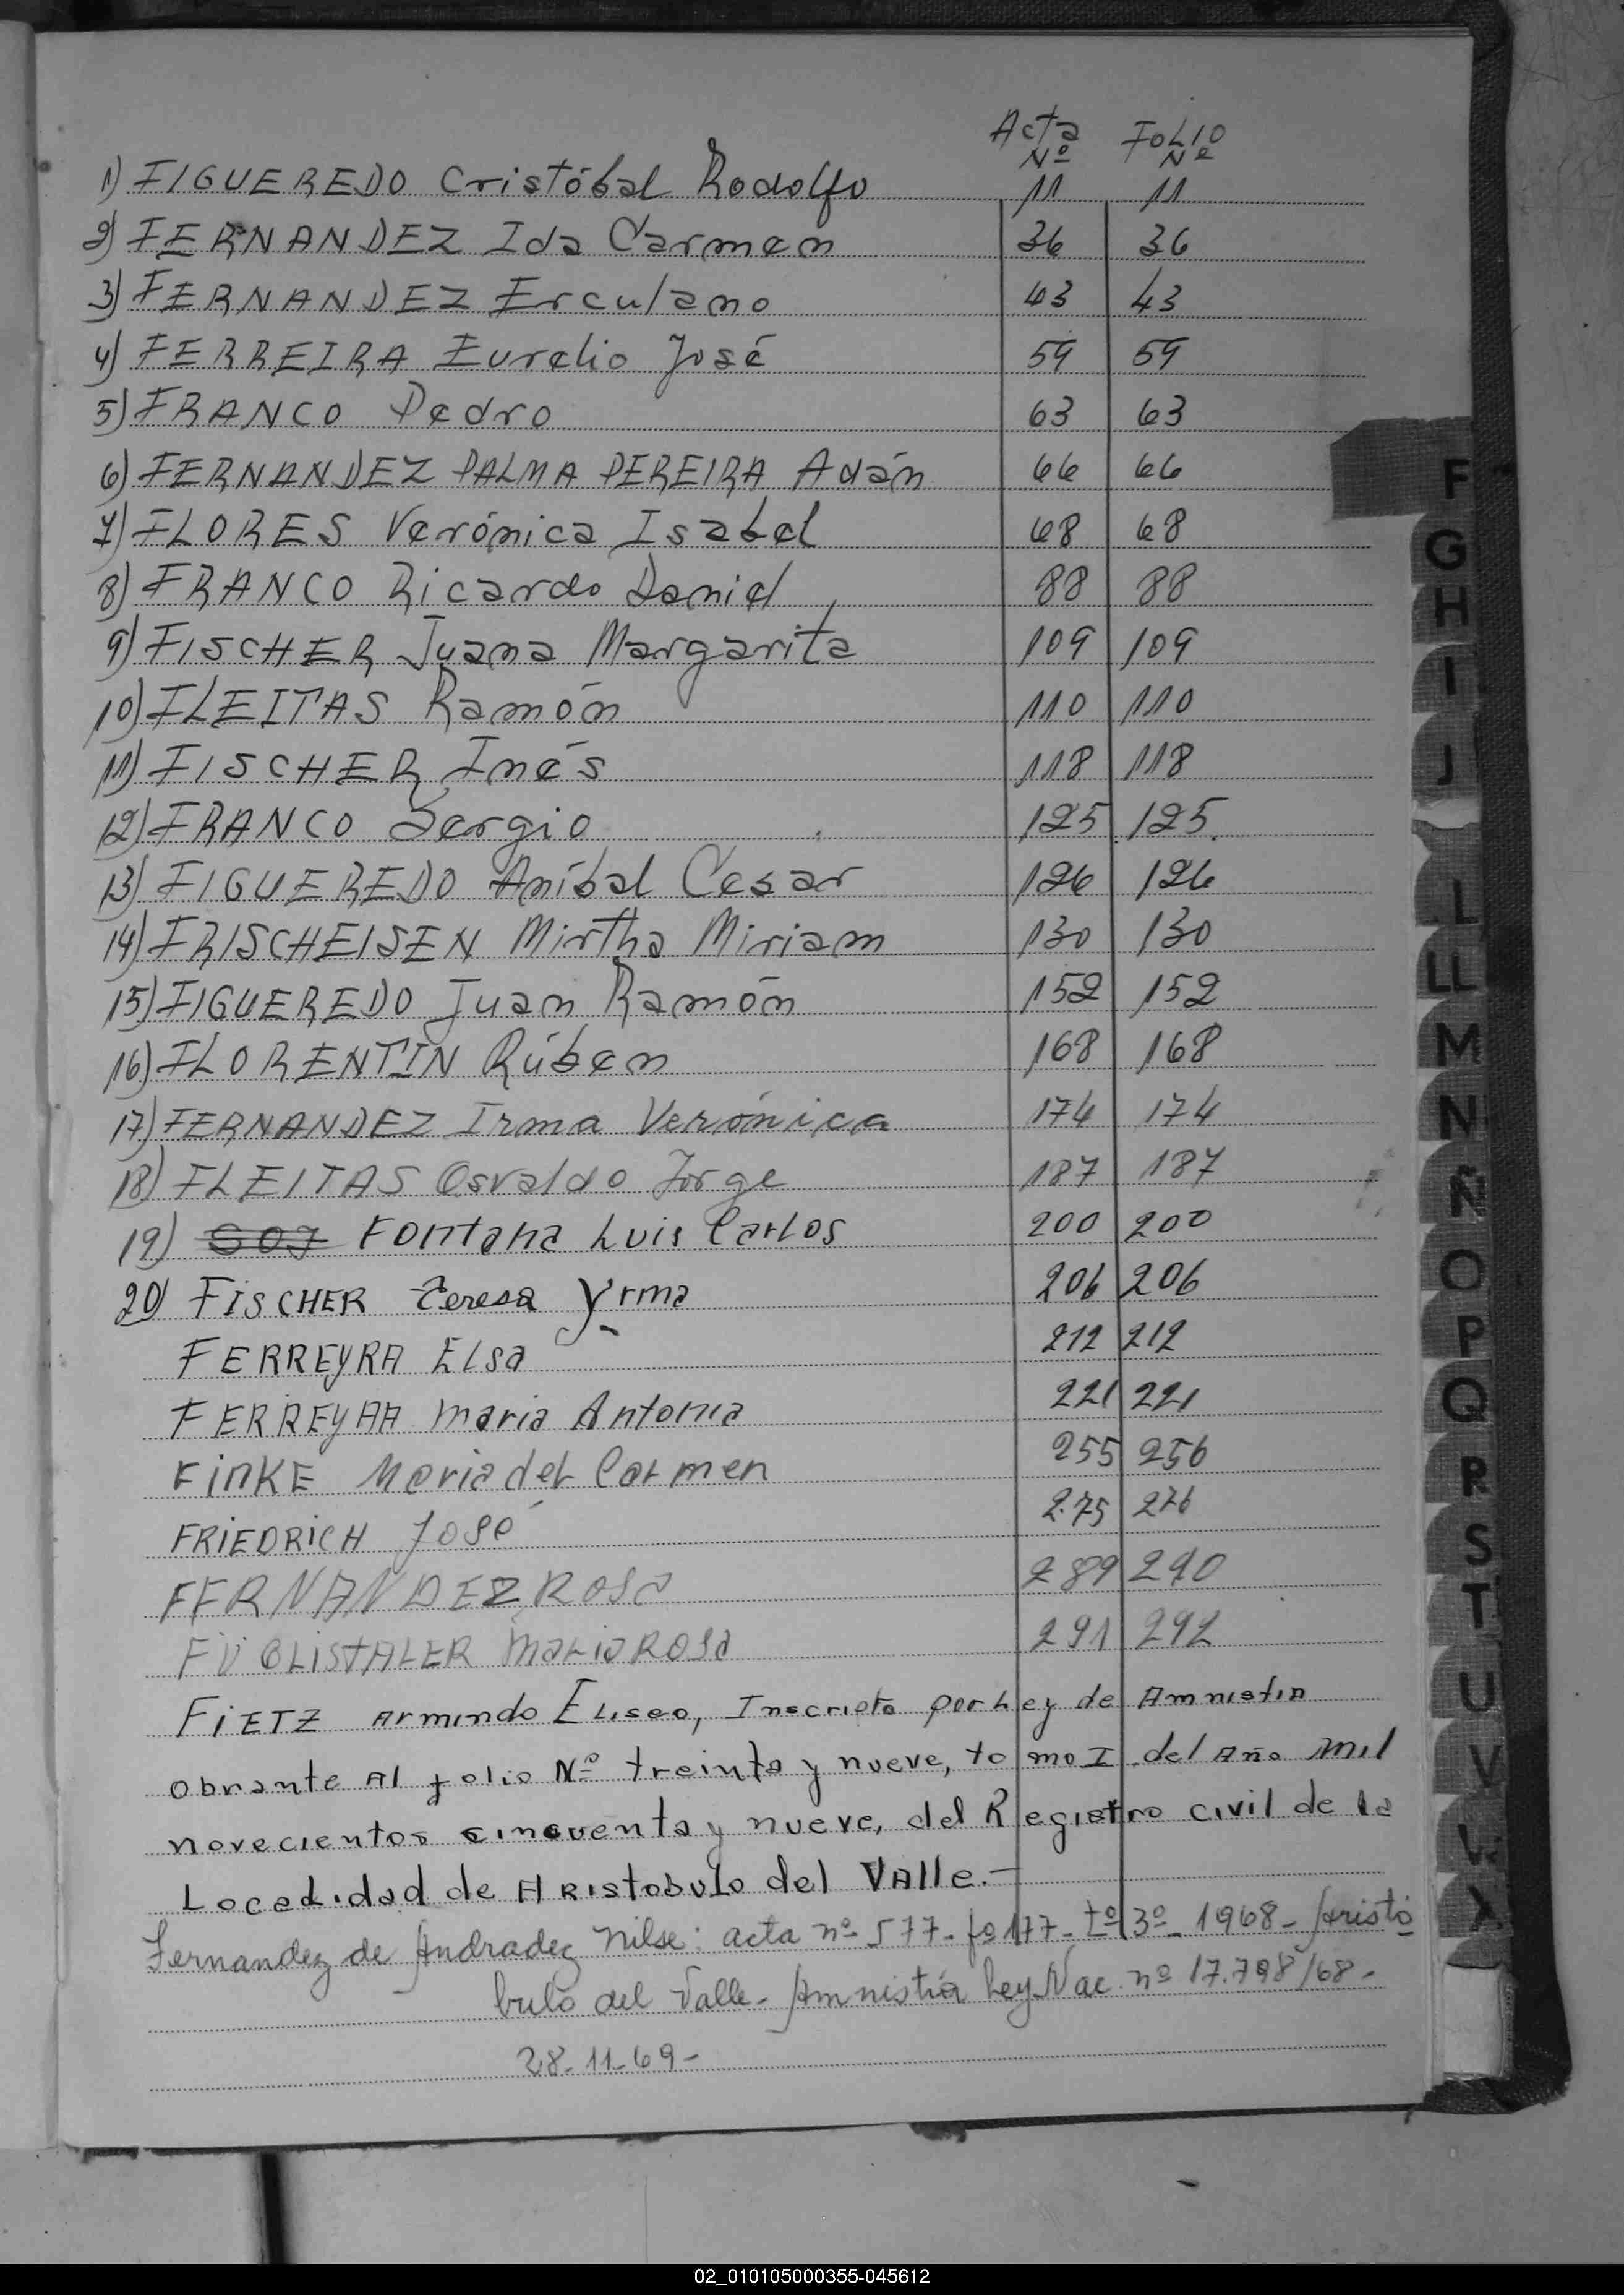 Acta FOLIO
Nº Nº
1) FIGUEREDO Cristóbal Rodolfo 11 11
2) FERNANDEZ Ida Carmen 36 36
3) FERNANDEZ Erculano 43 43
4) FERREIRA Eurelio José 59 59
5) FRANCO Pedro 63 63
6) FERNANDEZ PALMA PEREIRA Adán 66 66
7) FLORES Verónica Isabel 68 68
8) FRANCO Ricardo Daniel 88 88
9) FISCHER Juana Margarita 109 109
10) FLEITAS Ramón 110 110
11) FISCHER Inés 118 118
12) FRANCO Sergio 125 125.
13) FIGUEREDO Aníbal Cesar 126 126
14) FRISCHEISEN Mirtha Miriam 130 130
15) FIGUEREDO Juan Ramón 152 152
16) FLORENTIN Rúben 168 168
17) FERNANDEZ Irma Verónica 174 174
18) FLEITAS Osvaldo Jorge 187 187
19) SOJ Fontana Luis Carlos 200 200
20) FISCHER Teresa Yrma 206 206
FERREYRA Elsa 212 212
FERREYRA Maria Antonia 221 221
FINKE Maria del Carmen 255 256
FRIEDRICH José 275 276
FERNANDEZ ROSA 289 290
MARIA ROSA 291 292
FIETZ Armindo Eliseo, Inscripto por Ley de Amnistia
obrante Al folio Nº treinta y nueve, tomo I del Año mil
novecientos cincuenta y nueve, del Registro civil de la
Localidad de ARISTOBULO del VALLE.-
Fernandez de Andradez Nilse: acta nº 577- fº 177- tº 3º- 1968- Aristó
bulo del Valle- Amnistía Ley Nac. nº 17.798/68-
28-11-69-
F
G
H
I
J
L
LL
M
N
Ñ
O
P
Q
R
S
T
U
V
W
X
02_010105000355-045612